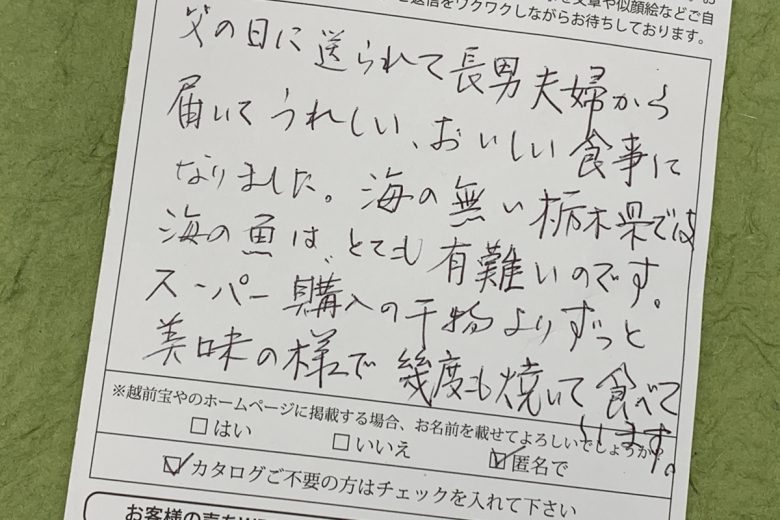 文章や似顔絵などご自
返信をワクワクしながらお待ちしております。
父の日に送られて長男夫婦から
届いてうれしい、おいしい食事に
なりました。海の無い栃木県では
海の魚は、とても有難いのです。
スーパー購入の干物よりずっと
美味の様で幾度も焼いて食べて
います。
※越前宝やのホームページに掲載する場合、お名前を載せてよろしいでしょうか?
□はい □いいえ ☑匿名で
☑カタログご不要の方はチェックを入れて下さい
お客様の声をWE